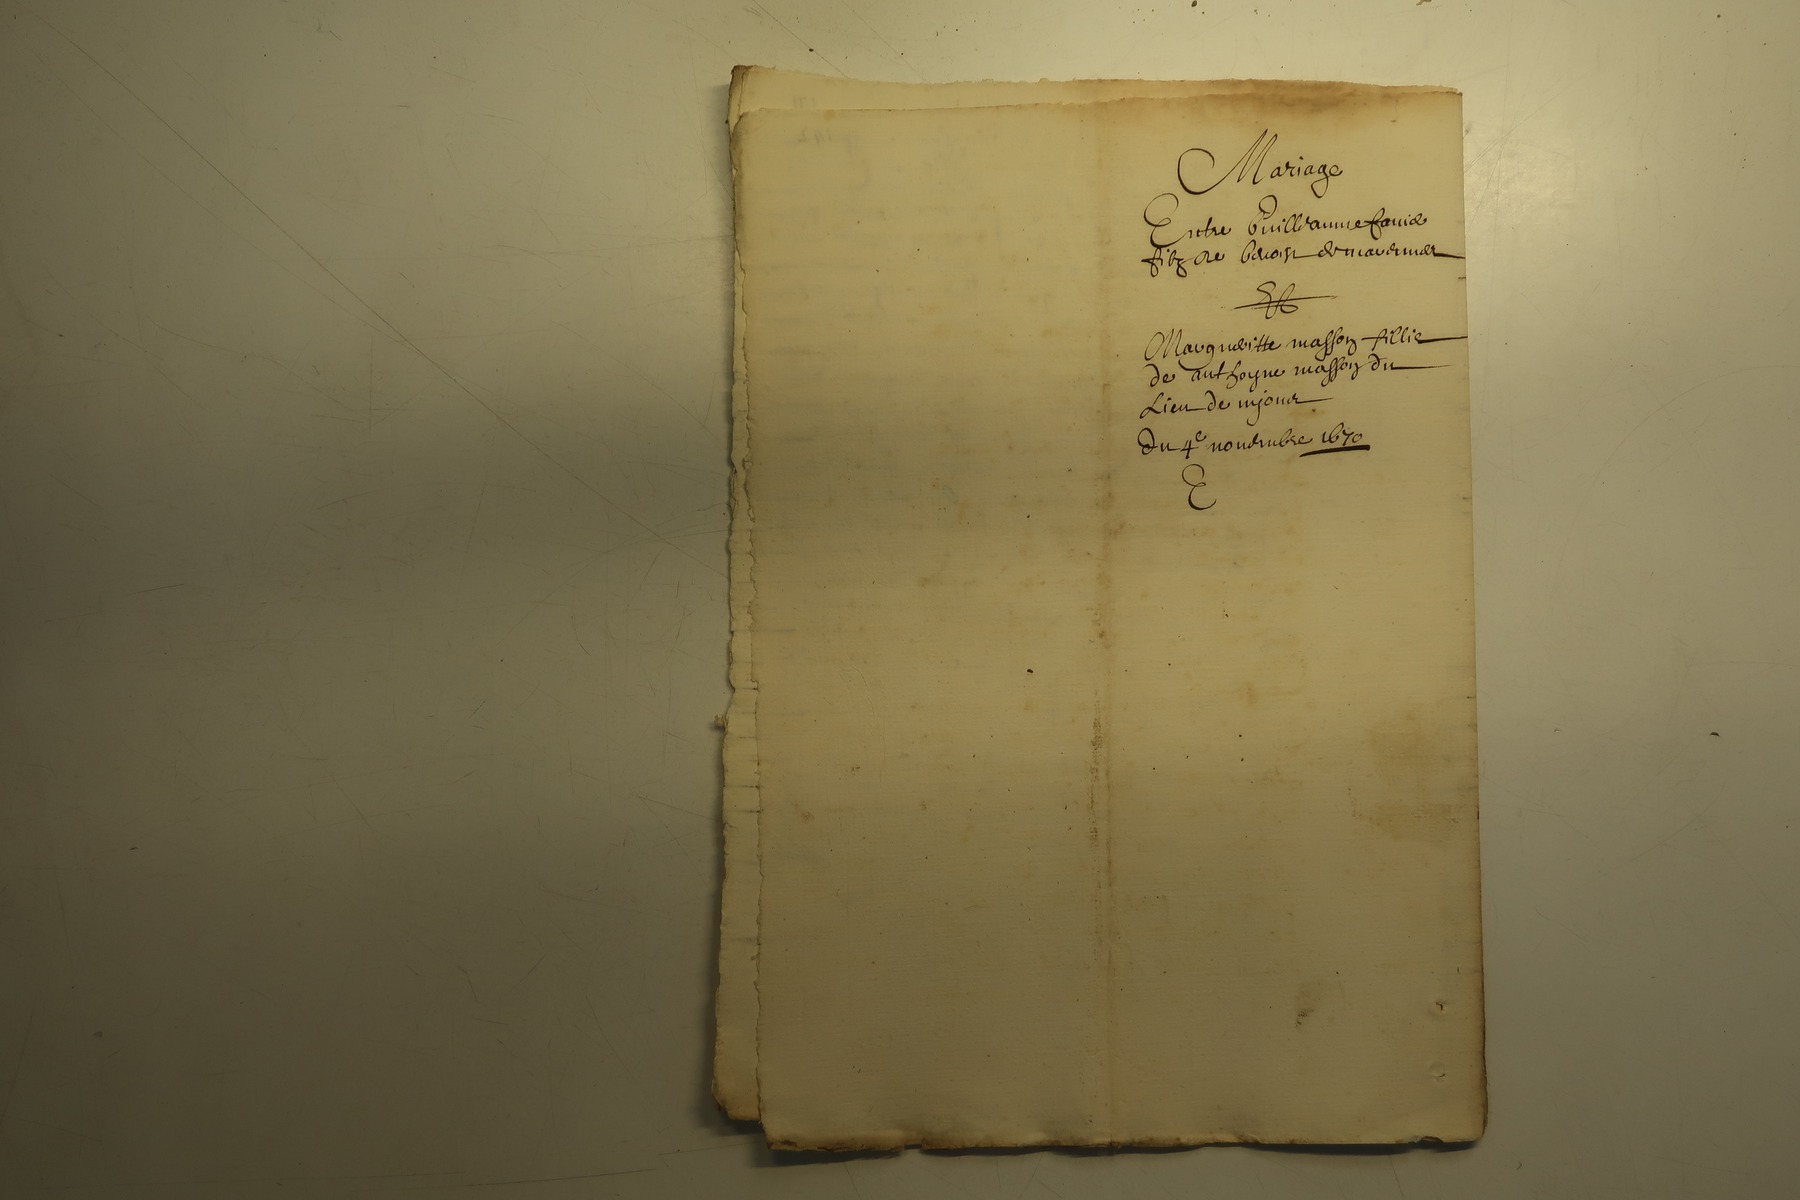 Mariage
Entre Guilleaume
filz de benoist de
Et
Margueritte masson fillie
de anthoyne masson du
Lieu de
du 4e novembre 1670
E